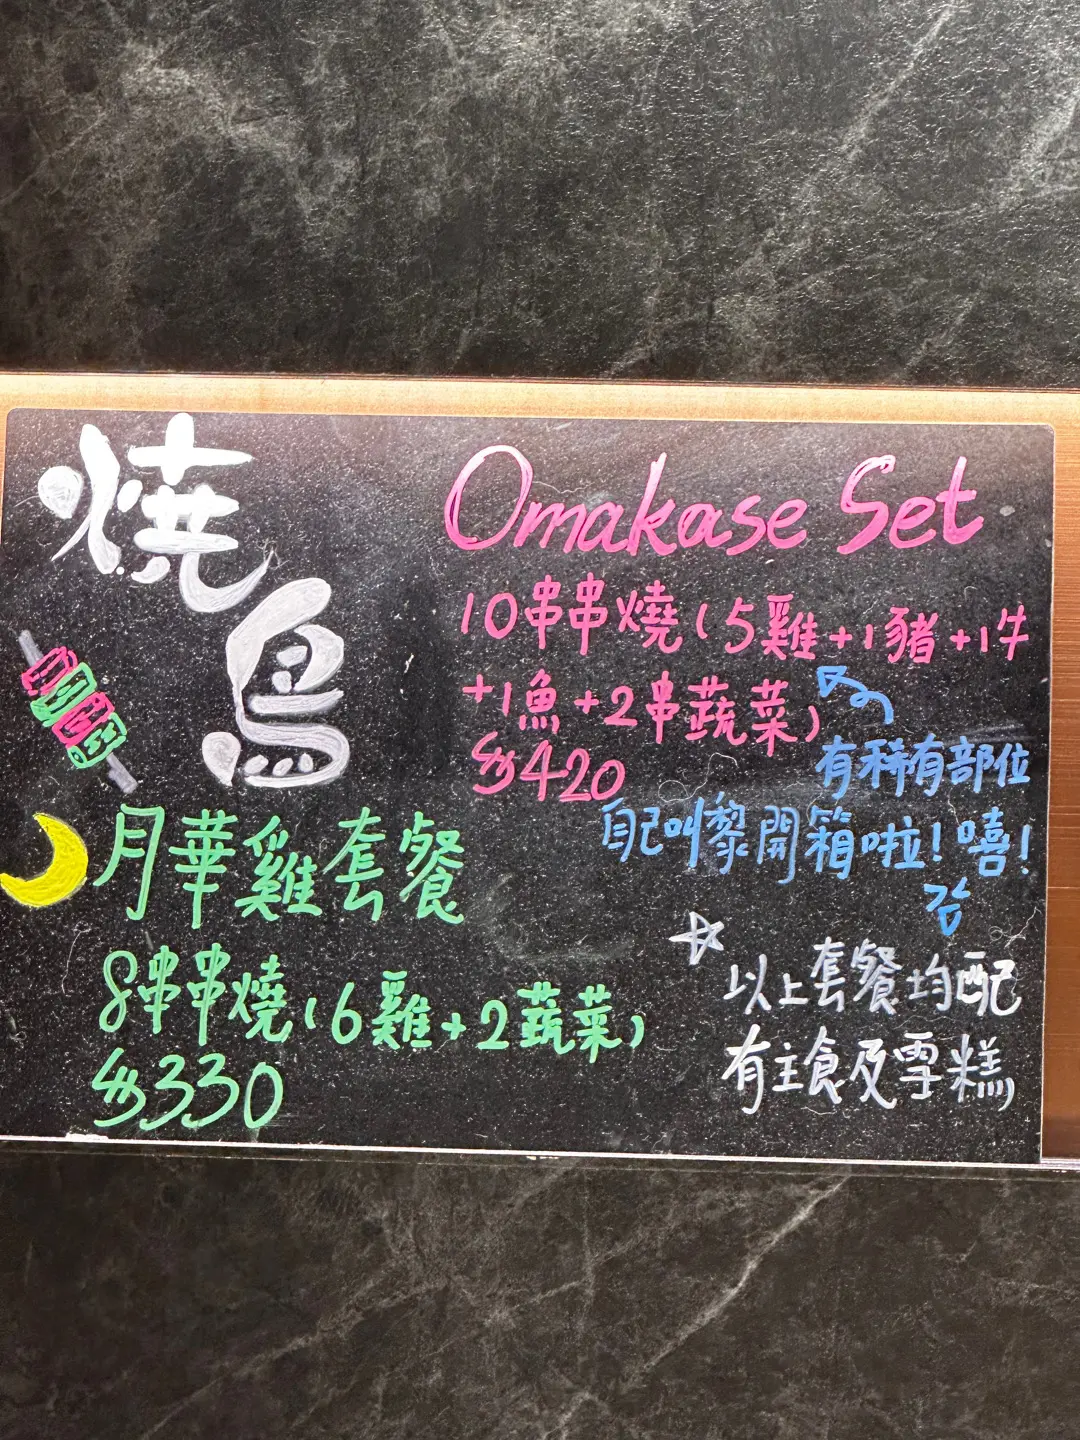 燒鳥
Omakase Set
10串串燒(5雞+1豬+1牛
+1魚+2串蔬菜)
$420
有稀有部位
自己叫嚟開箱啦!嘻!
月華雞套餐
8串串燒(6雞+2蔬菜)
$330
以上套餐均配
有主食及雪糕